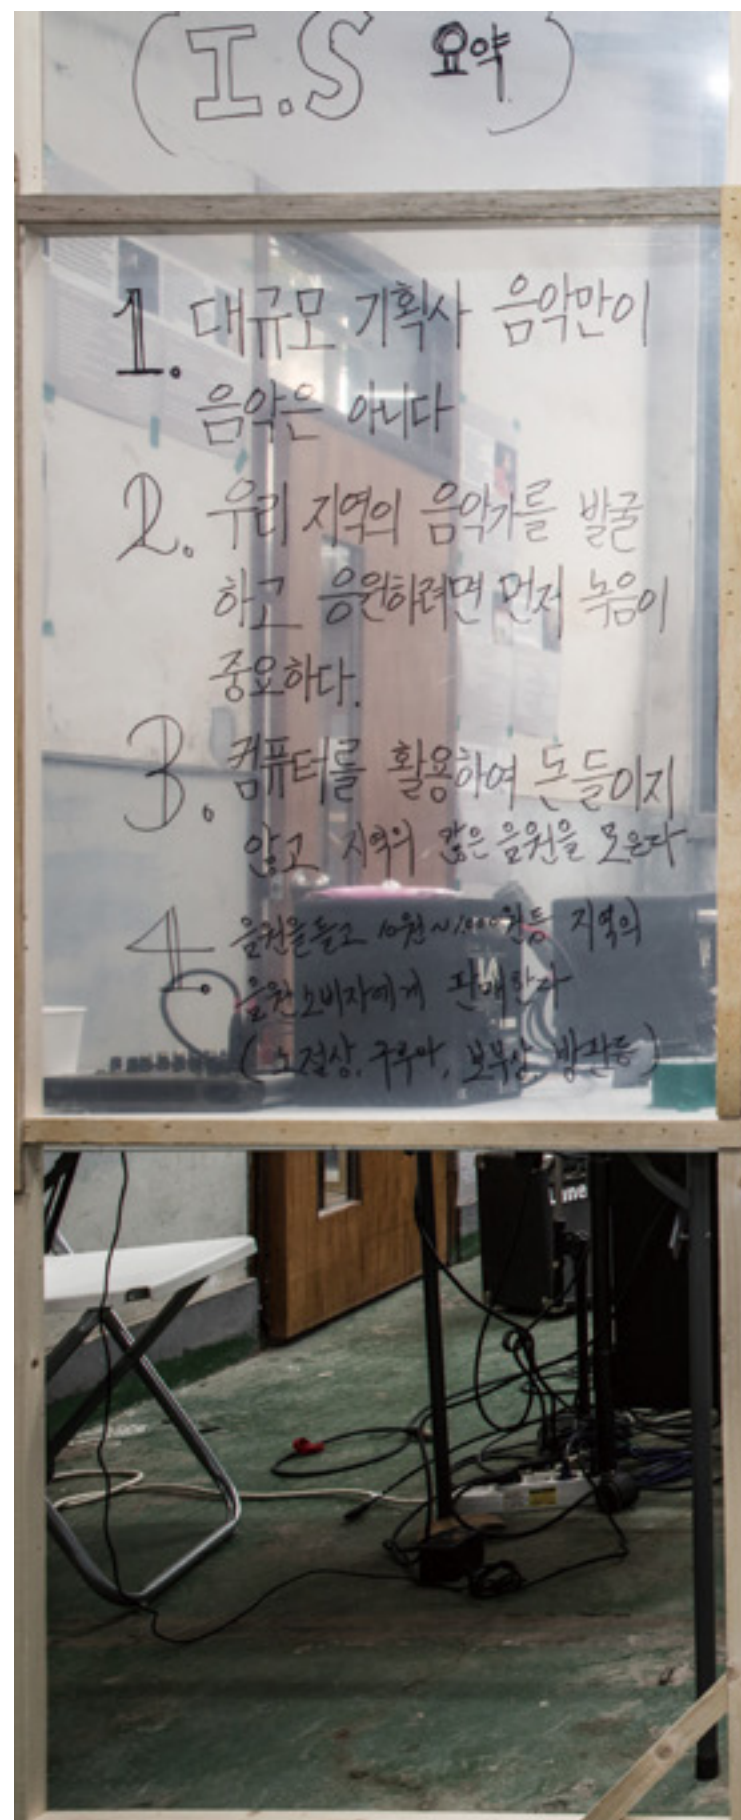 (I.S 요약)
1. 대규모 기획사 음악만이
음악은 아니다
2. 우리 지역의 음악가를 발굴
하고 응원하려면 먼저 녹음이
중요하다.
3. 컴퓨터를 활용하여 돈들이지
않고 지역의 많은 음원을 모은다
4. 음원을들고 10원~1,000원등 지역의
음원소비자에게 판매한다
( 노점상, 구루마, 보부상, 방판등 )